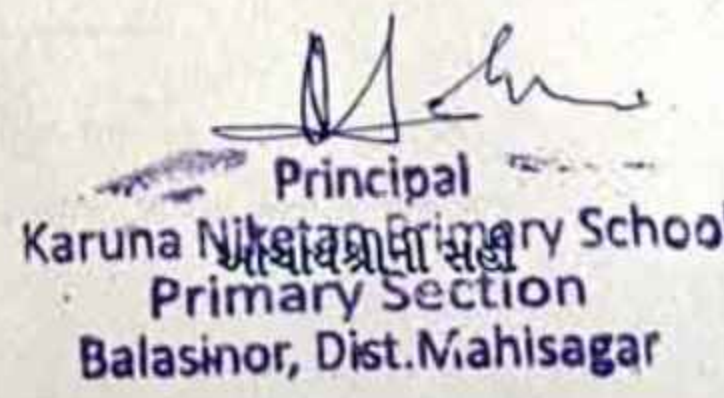 Principal
Karuna Niketan Primary School
Primary Section
Balasinor, Dist.Mahisagar